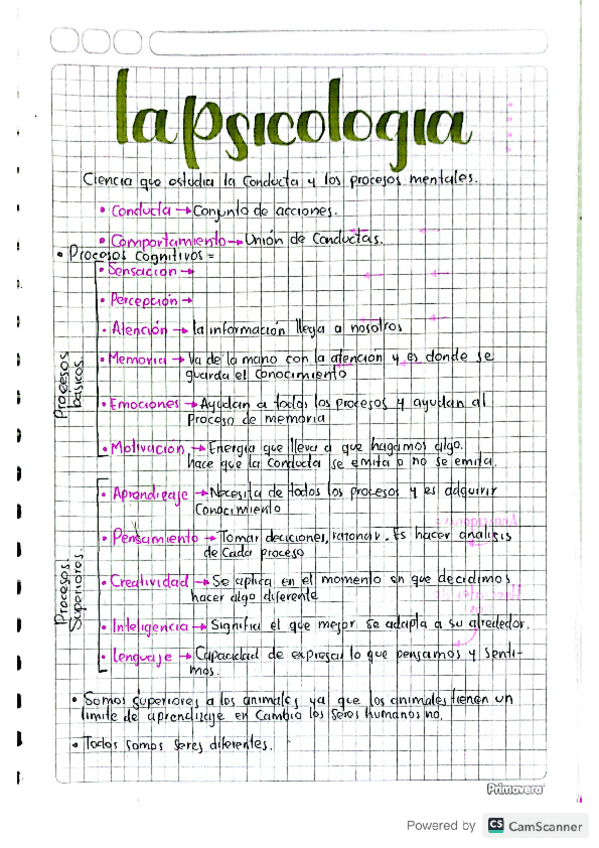 la psicologia
Ciencia que estudia la conducta y los procesos mentales.
• Conducta → Conjunto de acciones.
• Comportamiento → Unión de Conductas.
• Procesos Cognitivos =
• Sensación →
• Percepción →
• Atención → la información llega a nosotros
• Memoria → Va de la mano con la atención y es donde se
guarda el conocimiento
• Emociones → Ayudan a todos los procesos y ayudan al
Proceso de memoria
• Motivación → Energia que lleva a que hagamos algo.
hace que la conducta se emita o no se emita.
Procesos
basicos.
• Aprendizaje → Necesita de todos los procesos y es adquirir
Conocimiento
• Pensamiento → Tomar deciciones, razonar. Es hacer analisis
de cada proceso
• Creatividad → Se aplica en el momento en que decidimos
hacer algo diferente
• Inteligencia → Significa el que mejor se adapta a su alrededor.
• lenguaje → Capacidad de expresar lo que pensamos y senti-
mos.
Procesos
Superiores.
• Somos superiores a los animales ya que los animales tienen un
limite de aprendizaje en cambio los seres humanos no.
• Todos somos seres diferentes.
Primavera
Powered by CS CamScanner